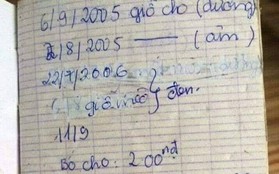 6/9/2005 giỗ chó (dương)
2/8/2005 —— (âm)
22/7/2006
giỗ mèo } đen.
11/9
Bố cho: 200nđ